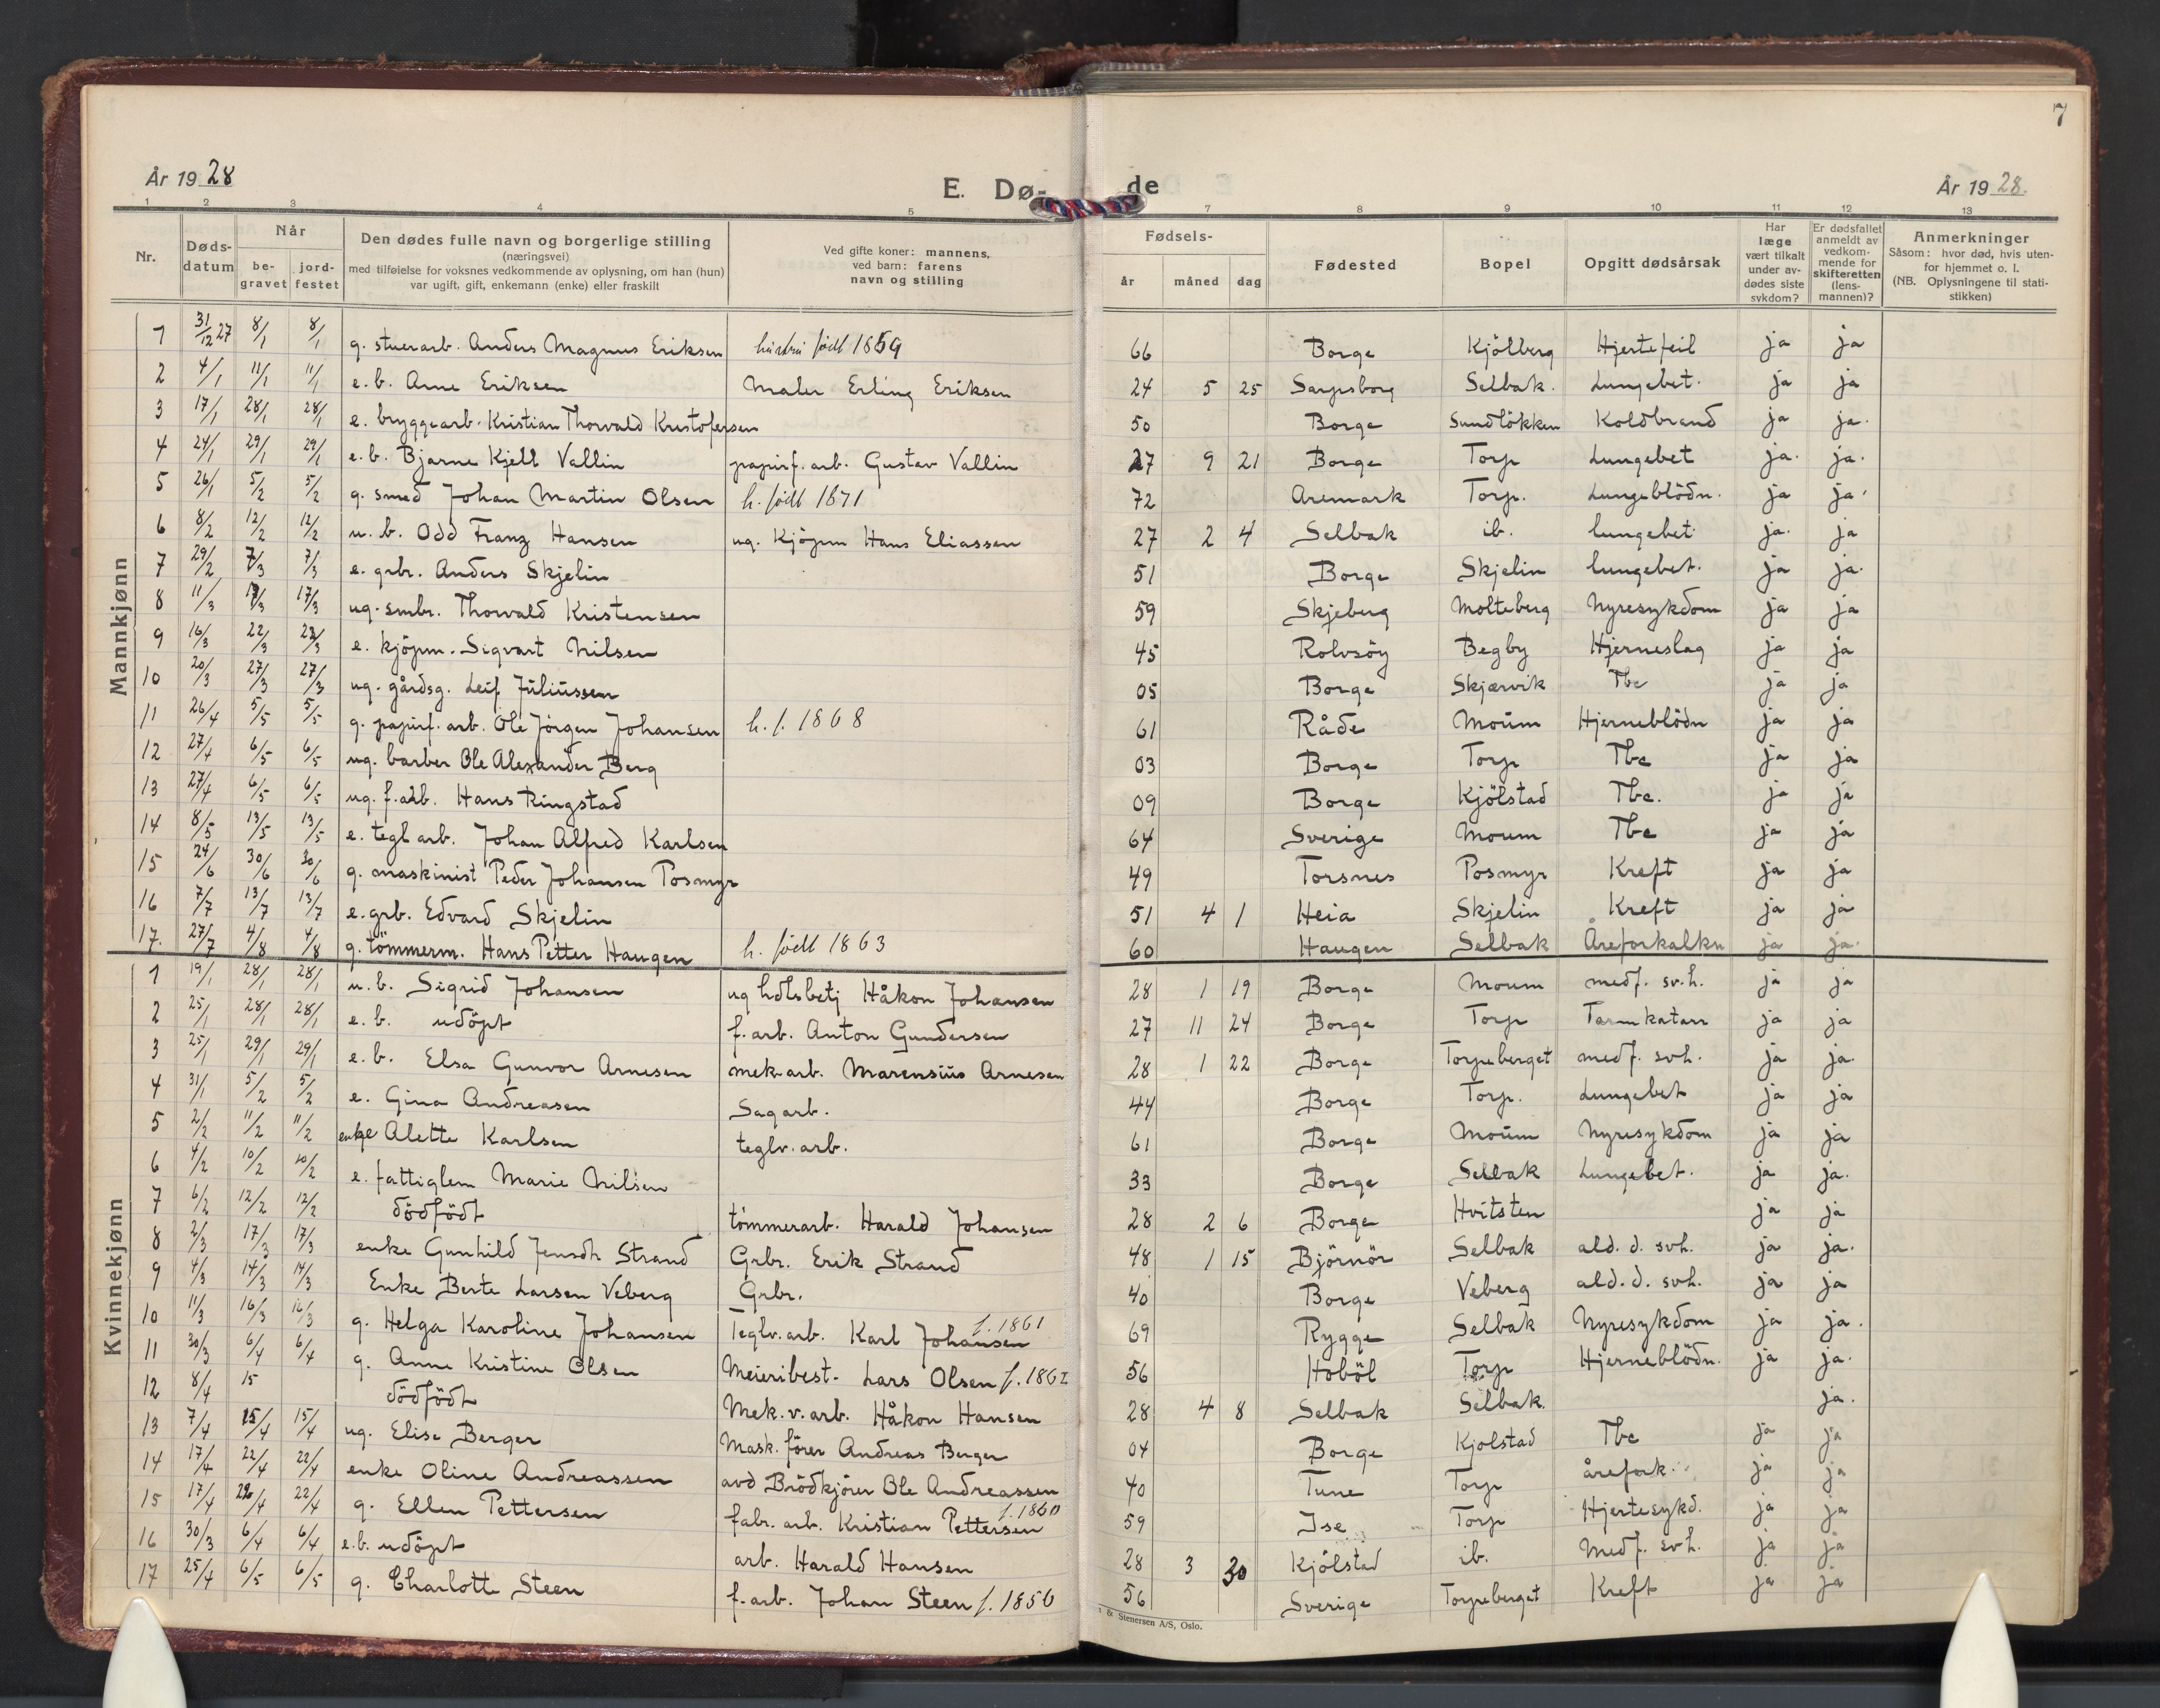 7
År 1928
E. Dø-
de
År 1928.
1 2 3 4 5 7 8 9 10 11 12 13
Nr.
Døds-datum
Når
be-gravet
jord-festet
Den dødes fulle navn og borgerlige stilling
(næringsvei)
med tilføielse for voksnes vedkommende av oplysning, om han (hun)
var ugift, gift, enkemann (enke) eller fraskilt
Ved gifte koner: mannens,
ved barn: farens
navn og stilling
Fødsels-
år måned dag
Fødested
Bopel
Opgitt dødsårsak
Har læge vært tilkalt under av-dødes siste sykdom?
Er dødsfallet anmeldt av vedkom-mende for skifteretten (lens-mannen)?
Anmerkninger
Såsom: hvor død, hvis uten-
for hjemmet o. l.
(NB. Oplysningene til stati-
stikken)
Mannkjønn
1 31/12 27 8/1 8/1 g. stuerarb. Anders Magnus Eriksen hustru født 1859 66 Borge Kjölberg Hjertefeil ja ja
2 4/1 11/1 11/1 e.b. Arne Eriksen Maler Erling Eriksen 24 5 25 Sarpsborg Selbak. Lungebet. ja ja
3 17/1 28/1 28/1 e. bryggearb. Kristian Thorvald Kristofersen 50 Borge Sundlökken Koldbrand ja ja.
4 24/1 29/1 29/1 e.b. Bjarne Kjell Vallin papirf.arb. Gustav Vallin 27 9 21 Borge Torp Lungebet ja. ja.
5 26/1 5/2 5/2 g. smed Johan Martin Olsen h. født 1871 72 Aremark Torp. Lungeblödn. ja ja.
6 8/2 12/2 12/2 u.b. Odd Franz Hansen ug. Kjöpm Hans Eliassen 27 2 4 Selbak ib. lungebet. ja. ja
7 29/2 7/3 7/3 e. grbr. Anders Skjelin 51 Borge Skjelin lungebet. ja ja.
8 11/3 17/3 17/3 ug. smbr. Thorvald Kristensen 59 Skjeberg Molteberg Nyresykdom ja ja
9 16/3 22/3 22/3 e. kjöpm. Sigvart Nilsen 45 Rolvsöy Begby Hjerneslag ja ja
10 20/3 27/3 27/3 ug. gårdsg. Leif Juliussen 05 Borge Skjærvik Tbc ja ja
11 26/4 5/5 5/5 g. papirf.arb. Ole Jörgen Johansen h.f. 1868 61 Råde Moum Hjerneblödn ja ja
12 27/4 6/5 6/5 ug. barber Ole Alexander Berg 03 Borge Torp Tbc ja ja
13 27/4 6/5 6/5 ug. f.arb. Hans Ringstad 09 Borge Kjölstad Tbc. ja ja
14 8/5 13/5 13/5 e. teglarb. Johan Alfred Karlsen 64 Sverige Moum Tbc ja ja
15 24/6 30/6 30/6 g. maskinist Peder Johansen Posmyr 49 Torsnes Posmyr Kreft ja ja
16 7/7 13/7 13/7 e. grb. Edvard Skjelin 51 4 1 Heia Skjelin Kreft ja ja
17. 27/7 4/8 4/8 g. tömmerm. Hans Petter Haugen h. født 1863 60 Haugen Selbak Åreforkalkn ja ja.
Kvinnekjønn
1 19/1 28/1 28/1 u.b. Sigrid Johansen ug hdlsbetj Håkon Johansen 28 1 19 Borge Moum medf. sv.h. ja ja
2 25/1 28/1 28/1 e.b. udöpt f.arb. Anton Gundersen 27 11 24 Borge Torp Tarmkatarr ja ja
3 25/1 29/1 29/1 e.b. Elsa Gunvor Arnesen mek.arb. Marensius Arnesen 28 1 22 Borge Torpeberget medf. svh. ja ja.
4 31/1 5/2 5/2 e. Gina Andreasen Sagarb. 44 Borge Torp. Lungebet ja ja
5 2/2 11/2 11/2 enke Alette Karlsen teglv.arb. 61 Borge Moum Nyresykdom ja ja
6 4/2 10/2 10/2 e. fattiglem Marie Nilsen 33 Borge Selbak Lungebet. ja ja.
7 6/2 12/2 12/2 dödfödt tömmerarb. Harald Johansen 28 2 6 Borge Hvitsten ja ja
8 2/3 17/3 17/3 enke Gunhild Jensdtr Strand Grbr. Erik Strand 48 1 15 Björnör Selbak ald.d. svh. ja ja.
9 4/3 14/3 14/3 Enke Berte Larsen Veberg Grbr. 40 Borge Veberg ald.d. svh. ja ja
10 11/3 16/3 16/3 g. Helga Karoline Johansen Teglv.arb. Karl Johansen f. 1861 69 Rygge Selbak Nyresykdom ja ja.
11 30/3 6/4 6/4 g. Anne Kristine Olsen Meieribest. Lars Olsen f. 1862 56 Hoböl Torp Hjerneblödn. ja ja.
12 8/4 15 dödfödt Mek.v.arb. Håkon Hansen 28 4 8 Selbak Selbak. ja.
13 7/4 15/4 15/4 ug. Elise Berger Mask.förer Andreas Berger 04 Borge Kjolstad Tbc ja ja
14 17/4 22/4 22/4 enke Oline Andreassen avd Brödkjörer Ole Andreassen 40 Tune Torp årefork. ja ja
15 17/4 22/4 22/4 g. Ellen Pettersen fabr.arb. Kristian Pettersen f. 1860 59 Ise Torp Hjertesykd. ja ja
16 30/3 6/4 6/4 e.b. udöpt arb. Harald Hansen 28 3 30 Kjölstad ib. Medf. svh. ja ja
17 25/4 6/5 6/5 g. Charlotte Steen f.arb. Johan Steen f. 1856 56 Sverige Torpeberget Kreft ja ja
& Stenersen A/S, Oslo.